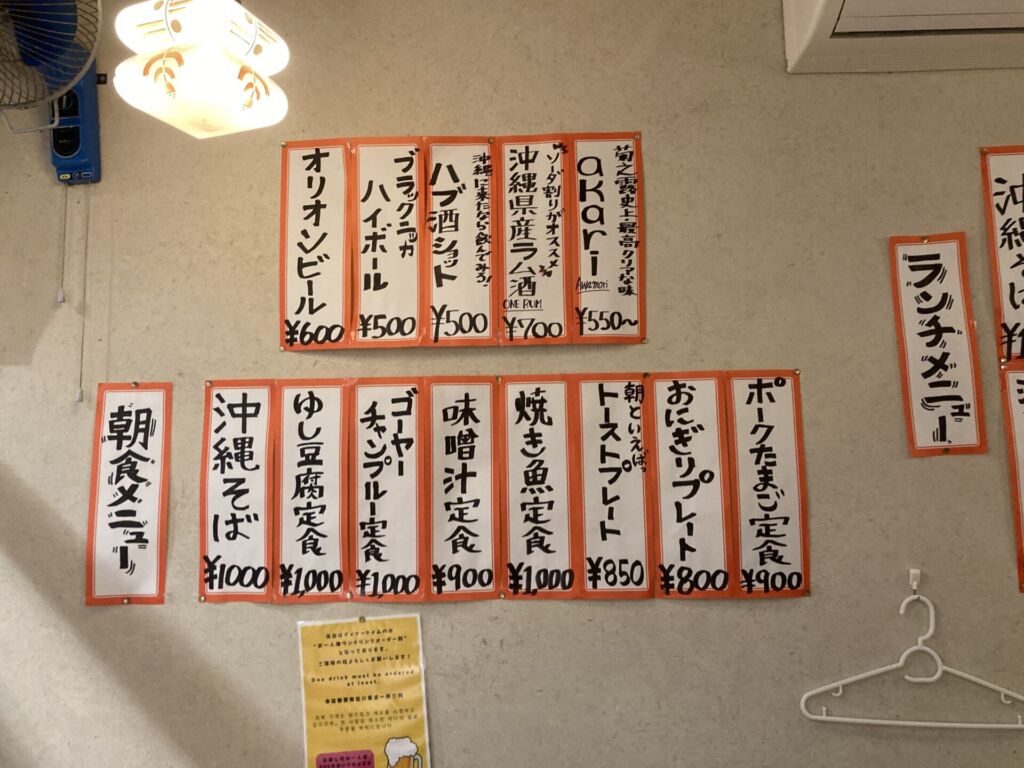 菊之露史上最高クリアな味
akari
Awamori
¥550~
ソーダ割りがオススメ
沖縄県産ラム酒
ONE RUM
¥700
沖縄に来たなら飲んでみろ!
ハブ酒ショット
¥500
ブラックニッカ
ハイボール
¥500
オリオンビール
¥600
ランチメニュー
ポークたまご定食
¥900
おにぎりプレート
¥800
朝といえば。
トーストプレート
¥850
焼き魚定食
¥1,000
味噌汁定食
¥900
ゴーヤー
チャンプルー定食
¥1,000
ゆし豆腐定食
¥1,000
沖縄そば
¥1000
朝食メニュー
となっております。
One drink must be ordered
at least.